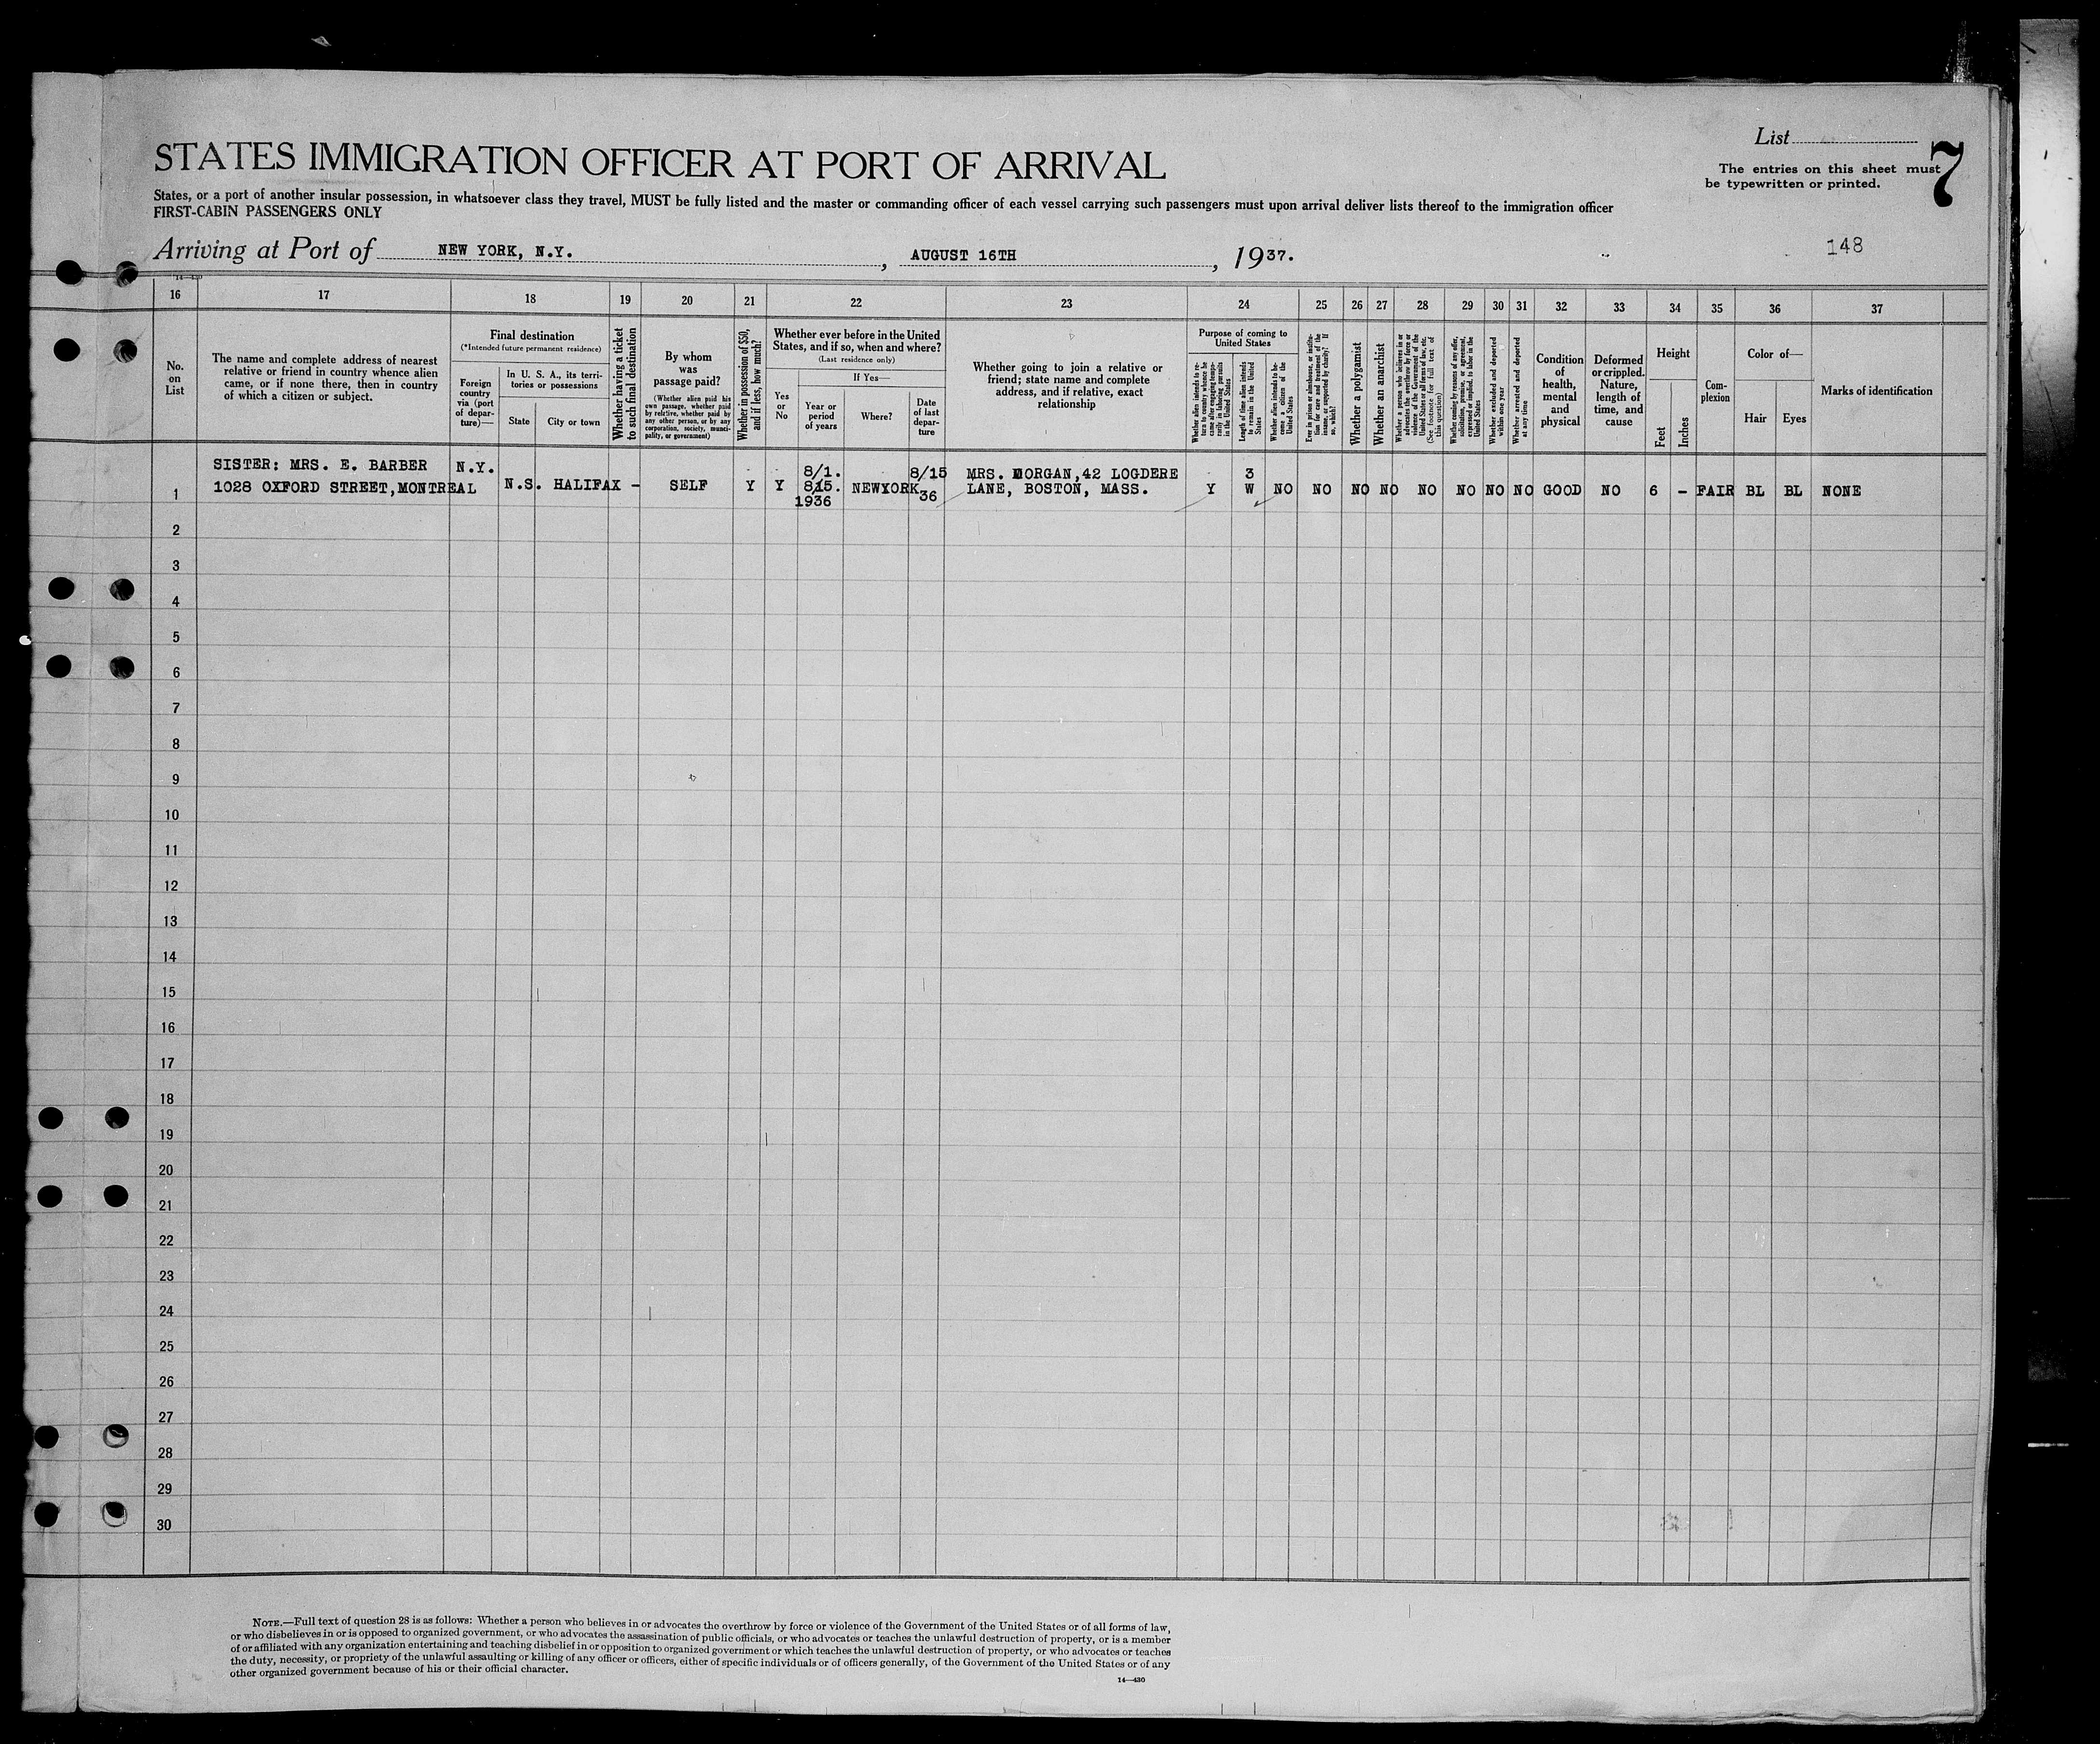 List
7
The entries on this sheet must
be typewritten or printed.
STATES IMMIGRATION OFFICER AT PORT OF ARRIVAL
States, or a port of another insular possession, in whatsoever class they travel, MUST be fully listed and the master or commanding officer of each vessel carrying such passengers must upon arrival deliver lists thereof to the immigration officer
FIRST-CABIN PASSENGERS ONLY
Arriving at Port of NEW YORK, N.Y. , AUGUST 16TH , 1937.
148
14—430
16 17 18 19 20 21 22 23 24 25 26 27 28 29 30 31 32 33 34 35 36 37
No.
on
List
The name and complete address of nearest
relative or friend in country whence alien
came, or if none there, then in country
of which a citizen or subject.
Final destination
(*Intended future permanent residence)
Foreign
country
via (port
of depar-
ture)—
In U. S. A., its terri-
tories or possessions
State
City or town
Whether having a ticket
to such final destination
By whom
was
passage paid?
(Whether alien paid his
own passage, whether paid
by relative, whether paid by
any other person, or by any
corporation, society, munici-
pality, or government)
Whether in possession of $50,
and if less, how much?
Whether ever before in the United
States, and if so, when and where?
(Last residence only)
Yes
or
No
If Yes—
Year or
period
of years
Where?
Date
of last
depar-
ture
Whether going to join a relative or
friend; state name and complete
address, and if relative, exact
relationship
Purpose of coming to
United States
Whether alien intends to re-
turn to country whence he
came after engaging tempo-
rarily in laboring pursuits
in the United States
Length of time alien intends
to remain in the United
States
Whether alien intends to be-
come a citizen of the
United States
Ever in prison or almshouse, or institu-
tion for care and treatment of the
insane, or supported by charity? If
so, which?
Whether a polygamist
Whether an anarchist
Whether a person who believes in or
advocates the overthrow by force or
violence of the Government of the
United States or all forms of law, etc.
(See footnote for full text of
this question)
Whether coming by reasons of any offer,
solicitation, promise, or agreement,
expressed or implied, to labor in the
United States
Whether excluded and deported
within one year
Whether arrested and deported
at any time
Condition
of
health,
mental
and
physical
Deformed
or crippled.
Nature,
length of
time, and
cause
Height
Feet
Inches
Com-
plexion
Color of—
Hair
Eyes
Marks of identification
SISTER: MRS. E. BARBER N.Y. 8/1. 8/15 MRS. MORGAN,42 LOGDERE 3
1 1028 OXFORD STREET,MONTREAL N.S. HALIFAX - SELF Y Y 815. NEWYORK 36 LANE, BOSTON, MASS. Y W NO NO NO NO NO NO NO NO GOOD NO 6 - FAIR BL BL NONE
1936
2
3
4
5
6
7
8
9
10
11
12
13
14
15
16
17
18
19
20
21
22
23
24
25
26
27
28
29
30
NOTE.—Full text of question 28 is as follows: Whether a person who believes in or advocates the overthrow by force or violence of the Government of the United States or of all forms of law,
or who disbelieves in or is opposed to organized government, or who advocates the assassination of public officials, or who advocates or teaches the unlawful destruction of property, or is a member
of or affiliated with any organization entertaining and teaching disbelief in or opposition to organized government or which teaches the unlawful destruction of property, or who advocates or teaches
the duty, necessity, or propriety of the unlawful assaulting or killing of any officer or officers, either of specific individuals or of officers generally, of the Government of the United States or of any
other organized government because of his or their official character.
14—430